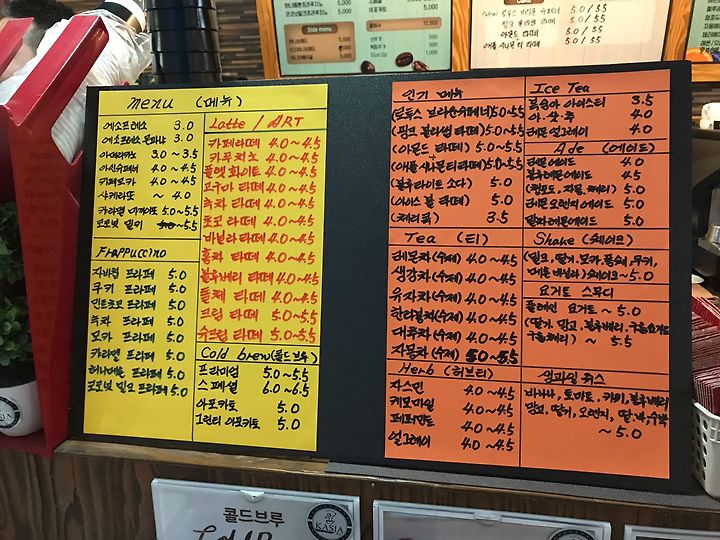 Side menu
5,000
5,000
5,000
12,000
Size Up
5.0 / 5.5
아몬드 라떼 5.0 / 5.5
애플시나몬티라떼 5.0 / 5.5
menu (메뉴)
에소프레소 3.0
에소프레소 콘파냐 3.0
아메리카노 3.0 ~ 3.5
아인슈페너 4.0 ~ 4.5
카페모카 4.0 ~ 4.5
샤케라또 ~ 4.0
카라멜 마끼아또 5.0 ~ 5.5
코코넛 밀키 5.5
Frappuccino
자바칩 프라페 5.0
쿠키 프라페 5.0
민트초코 프라페 5.0
녹차 프라페 5.0
모카 프라페 5.0
카라멜 프라페 5.0
허니버블 프라페 5.0
코코넛 밀크 프라페 5.0
Latte / ART
카페라떼 4.0 ~ 4.5
카푸치노 4.0 ~ 4.5
플랫화이트 4.0 ~ 4.5
고구마 라떼 4.0 ~ 4.5
녹차 라떼 4.0 ~ 4.5
초코 라떼 4.0 ~ 4.5
바닐라 라떼 4.0 ~ 4.5
홍차 라떼 4.0 ~ 4.5
블루베리 라떼 4.0 ~ 4.5
돌체 라떼 4.0 ~ 4.5
크림 라떼 5.0 ~ 5.5
슈크림 라떼 5.0 ~ 5.5
Cold brew (콜드브루)
프라미엄 5.0 ~ 5.5
스페셜 6.0 ~ 6.5
아포카토 5.0
그린티 아포카토 5.0
인기 메뉴
(로투스 브라운슈페너) 5.0~5.5
(핑크 블라썸 라떼) 5.0~5.5
(아몬드 라떼) 5.0 ~ 5.5
(애플 시나몬티 라떼) 5.0~5.5
(블루라이트 소다) 5.0
(아이스 볼 라떼) 5.0
(체리콕) 3.5
Tea (티)
레몬차(수제) 4.0 ~ 4.5
생강차(수제) 4.0 ~ 4.5
유자차(수제) 4.0 ~ 4.5
한라봉차(수제) 4.0 ~ 4.5
대추차(수제) 4.0 ~ 4.5
자몽차(수제) 5.0 ~ 5.5
Herb (허브티)
자스민 4.0 ~ 4.5
케모마일 4.0 ~ 4.5
페퍼민트 4.0 ~ 4.5
얼그레이 4.0 ~ 4.5
Ice Tea
복숭아 아이스티 3.5
아.샷.추 4.0
레몬 얼그레이 4.0
Ade (에이드)
레몬에이드 4.0
블루레몬에이드 4.5
(청포도, 자몽, 체리) 5.0
레몬 오렌지에이드 5.0
말차레몬에이드 5.0
Shake (쉐이크)
(밀크, 딸기, 모카, 퐁슈, 쿠키,
메론 바닐라) 쉐이크 ~ 5.0
요거트 스무디
플레인 요거트 ~ 5.0
(딸기, 망고, 블루베리, 구름요거트
구름체리) ~ 5.5
생과일 쥬스
바나나, 토마토, 키위, 블루베리
망고, 딸기, 오렌지, 딸.바, 수박
~ 5.0
콜드브루
KASIA